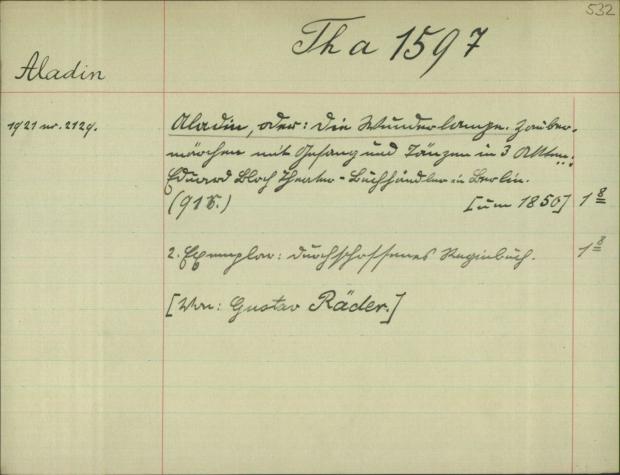 532
Th a 1597
Aladin
1921 nr. 2129.
Aladin, oder: Die Wunderlampe. Zauber-
märchen mit Gesang und Tänzen in 3 Akten.:
Eduard Bloch Theater-Buchhändler in Berlin.
(91 S.) [um 1850] 1 8
2. Exemplar: durchschossenes Regiebuch. 1 8
[Von: Gustav Räder.]